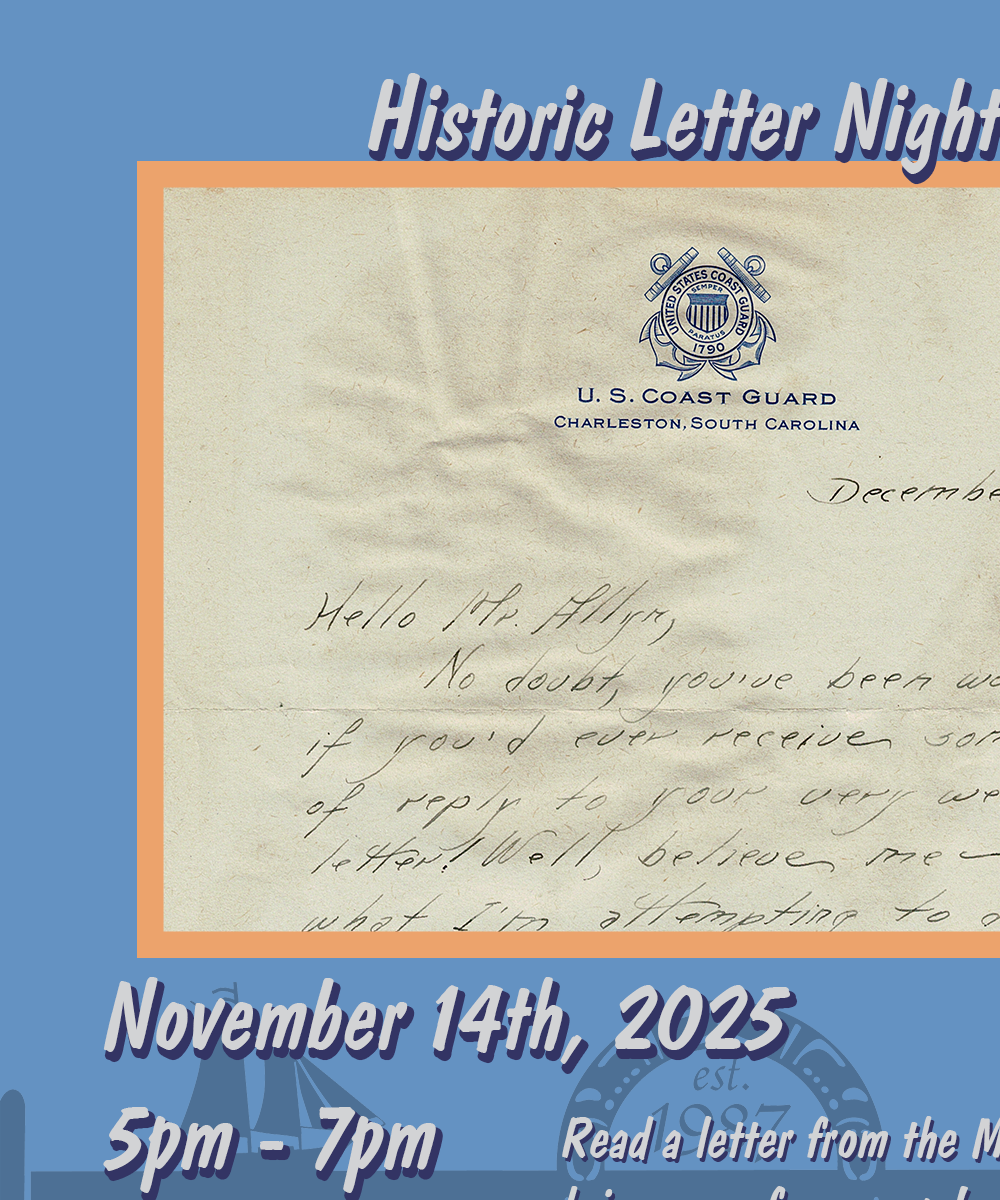 Historic Letter Night
UNITED STATES COAST GUARD
SEMPER
PARATUS
1790
U. S. COAST GUARD
CHARLESTON, SOUTH CAROLINA
Decembe
Hello Mr. Allyn,
No doubt, you've been wo
if you'd ever receive som
of reply to your very we
letter! Well, believe me —
what I'm attempting to d
November 14th, 2025
est.
1987
5pm - 7pm
Read a letter from the M